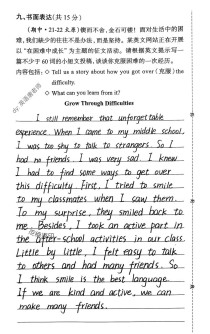 九、书面表达(共 15 分)
(角中·21-22 北京)锲而不舍,金石可镂!面对生活中的困
难,我们缺少的往往不是办法,而是坚持。某英文网站正在开展
以“在困难中成长”为主题的征文活动。请根据英文提示写一
篇不少于 60 词的小短文投稿,谈谈你克服困难的一次经历。
内容包括:◇ Tell us a story about how you got over(克服)the
difficulty.
◇ What can you learn from it?
Grow Through Difficulties
I still remember that unforgetable
experience. When I came to my middle school,
I was too shy to talk to strangers. So I
had no friends. I was very sad. I knew
I had to find some ways to get over
this difficulty. First, I tried to smile
to my classmates when I saw them.
To my surprise, they smiled back to
me. Besides, I took an active part in
the after-school activities in our class.
Little by little, I felt easy to talk
to others and had many friends. So
I think smile is the best language.
If we are kind and active, we can
make many friends.